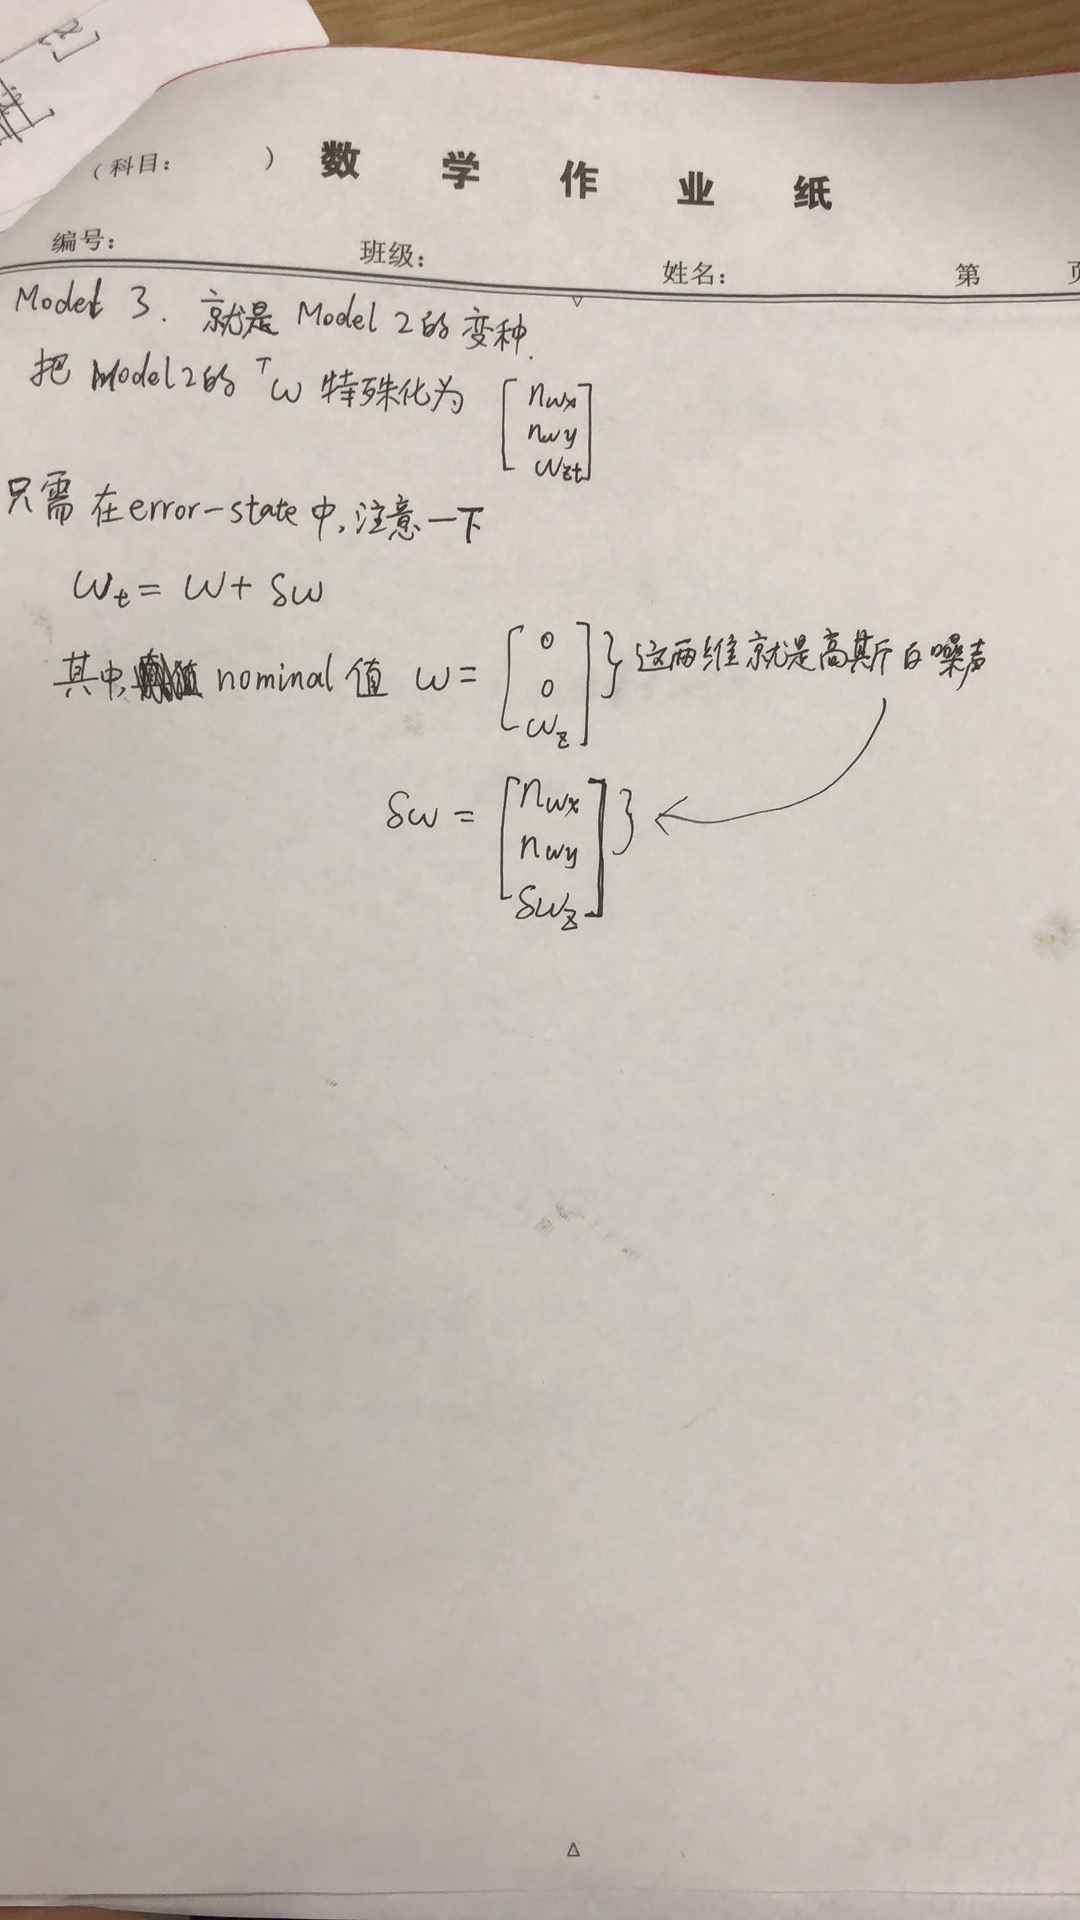 (科目: ) 数 学 作 业 纸
编号: 班级: 姓名: 第 页
Model 3. 就是 Model 2的变种.
把 Model2的 ᵀω 特殊化为 [nωx nωy ωzt]
只需在error-state中,注意一下
ωt = ω + δω
其中, nominal 值 ω = [0 0 ωz] } 这两维就是高斯白噪声
δω = [nωx nωy δωz] }